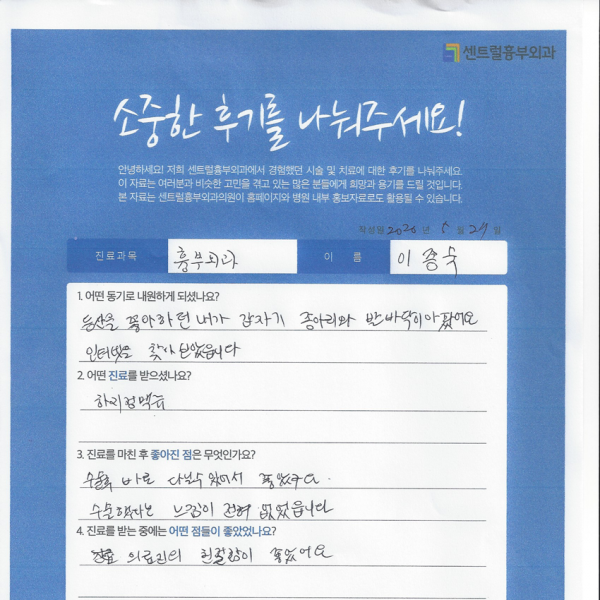 센트럴흉부외과
소중한 후기를 나눠주세요!
안녕하세요! 저희 센트럴흉부외과에서 경험했던 시술 및 치료에 대한 후기를 나눠주세요.
이 자료는 여러분과 비슷한 고민을 겪고 있는 많은 분들에게 희망과 용기를 드릴 것입니다.
본 자료는 센트럴흉부외과의원이 홈페이지와 병원 내부 홍보자료로도 활용될 수 있습니다.
작성일 2020 년 5 월 29 일
진료과목 흉부외과 이 름 이종숙
1. 어떤 동기로 내원하게 되셨나요?
등산을 좋아하던 내가 갑자기 종아리와 발바닥이 아팠어요
인터넷으로 찾아보았습니다
2. 어떤 진료를 받으셨나요?
하지정맥류
3. 진료를 마친 후 좋아진 점은 무엇인가요?
수술후 바로 다닐수 있어서 좋았구요.
수술했다는 느낌이 전혀 없었습니다
4. 진료를 받는 중에는 어떤 점들이 좋았었나요?
의료진의 친절함이 좋았어요